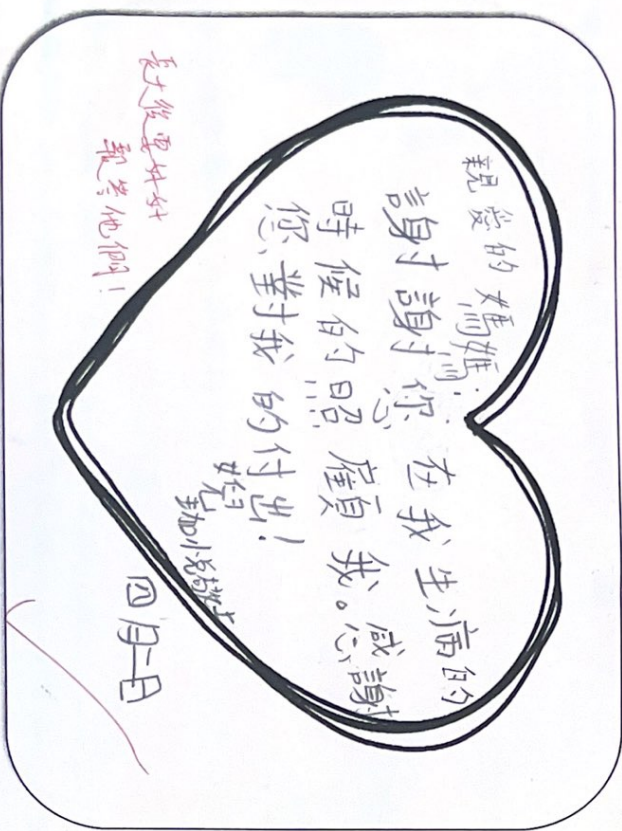 親愛的媽媽:
謝謝您在我生病的
時候的照顧我。感謝
您對我的付出!
女兒
敬上
四月二日
長大後要好好
報答他們!